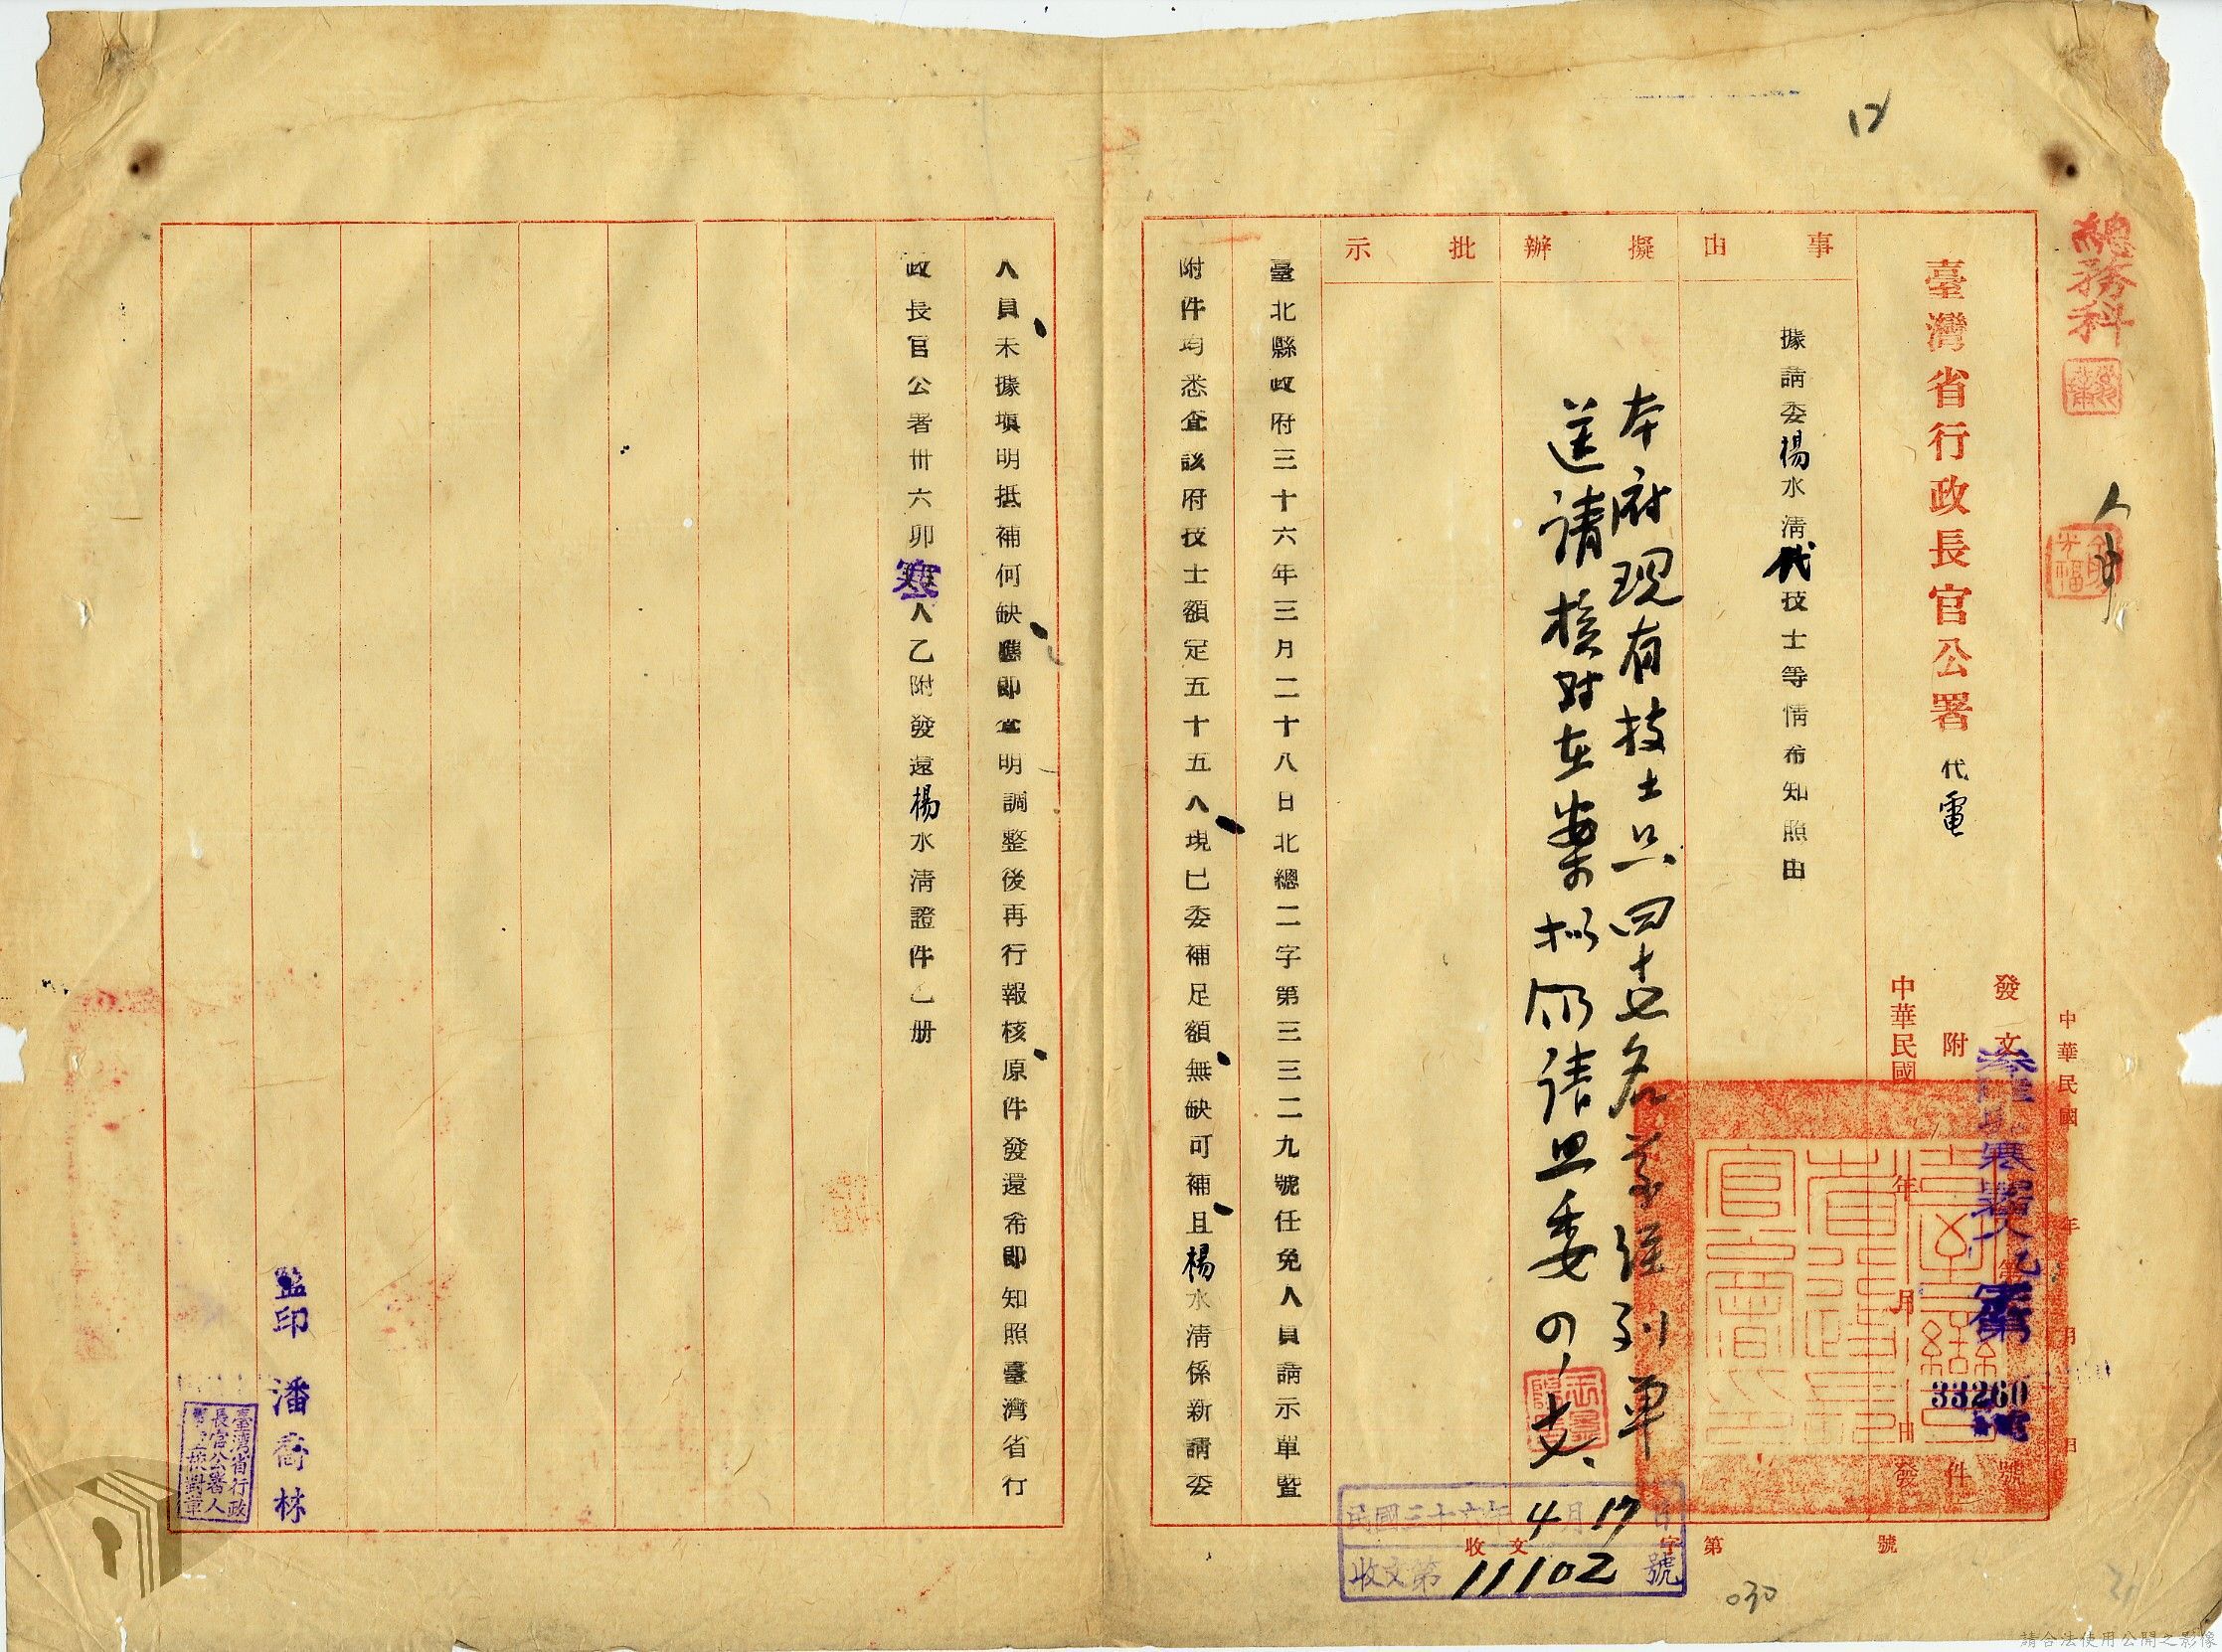 12
總務科
臺灣省行政長官公署 代電
中華民國 年 月 日
發文 寒 人乙 第 33260 號
附 件
中華民國 年 月 日發
事由
據請委楊水清代技士等情布知照由
擬辦
本府現有技士只四十七名業經列單
送請核對在案擬仍請照委
批示
臺北縣政府三十六年三月二十八日北總二字第三三二九號任免人員請示單暨
附件均悉查該府技士額定五十五人現已委補足額無缺可補且楊水清係新請委
人員未據塡明抵補何缺應即查明調整後再行報核原件發還布即知照臺灣省行
政長官公署卅六卯寒人乙附發還楊水清證件乙册
監印 潘喬林
臺灣省行政
長官公署人
校對章
收文 字第 號
民國三十六年4月17日
收文第11102號
030
請合法使用公開之影像